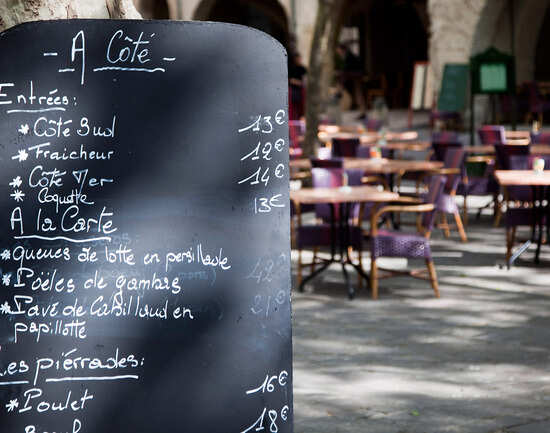 - A Côté -
Entrées:
* Côté Sud 13€
* Fraicheur 12€
* Côté Mer 14€
* Coquette 13€
A la Carte
* Queues de lotte en persillade
* Poëles de gambas
* Pavé de Cabillaud en
papillotte
Les piérrades:
* Poulet 16€
18€